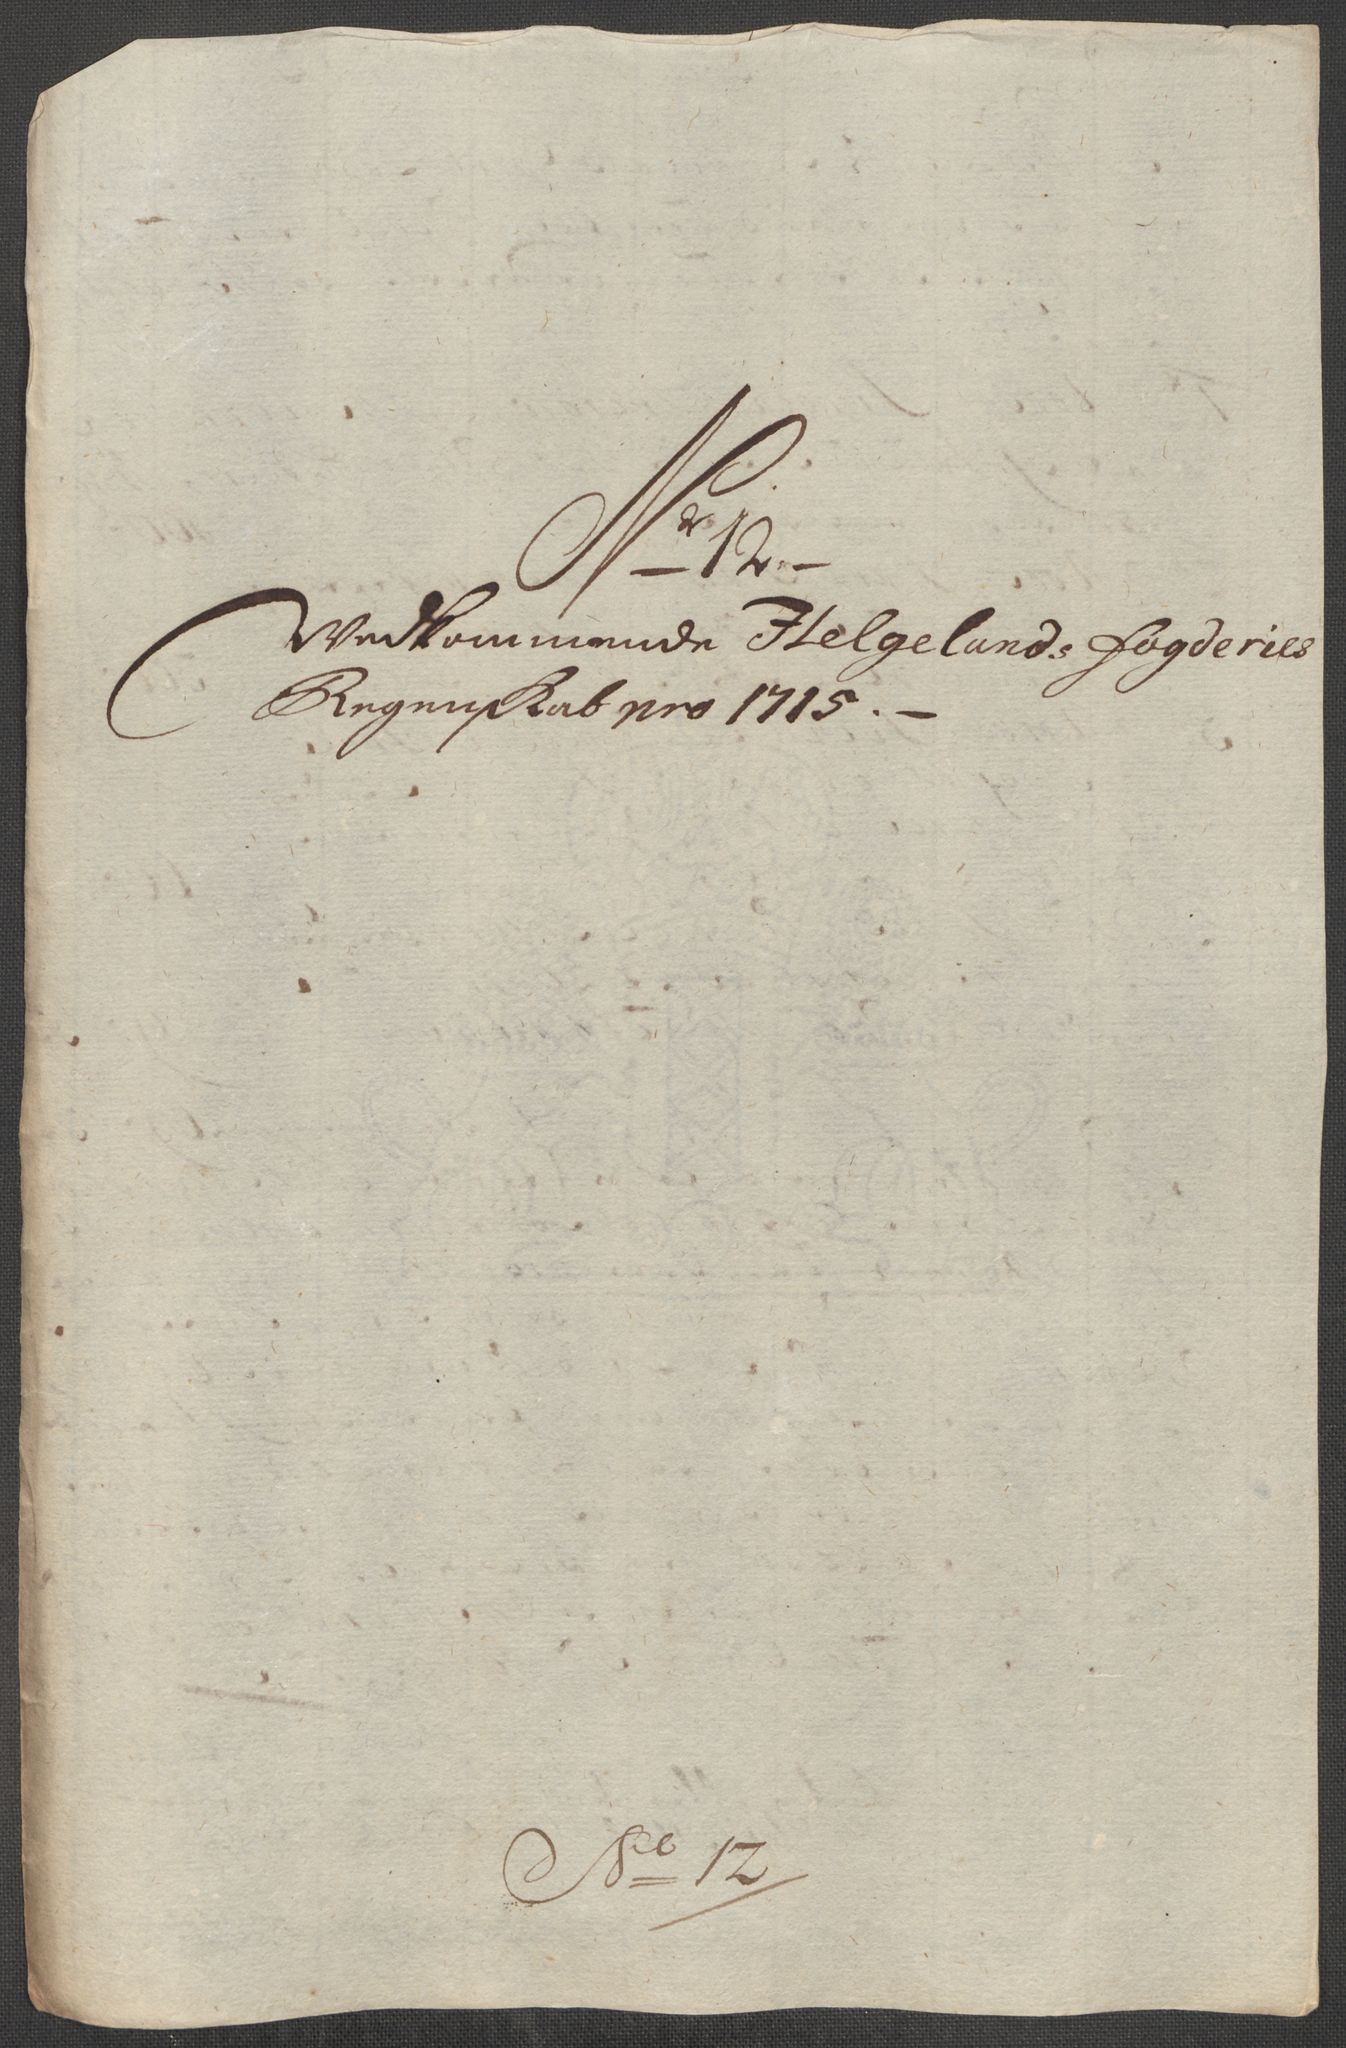 Nr 12.
Wedkommende Helgelands fogderies
Regenskab pro 1715.
No 12